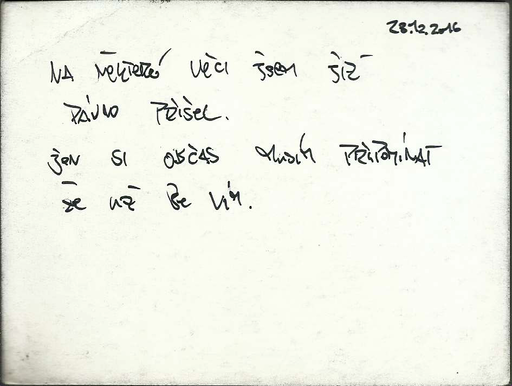 28.12.2016
NA NĚKTERÉ VĚCI JSEM JIŽ
DÁVNO PŘIŠEL.
JEN SI OBČAS MUSÍM PŘIPOMÍNAT
ŽE UŽ JE VÍM.